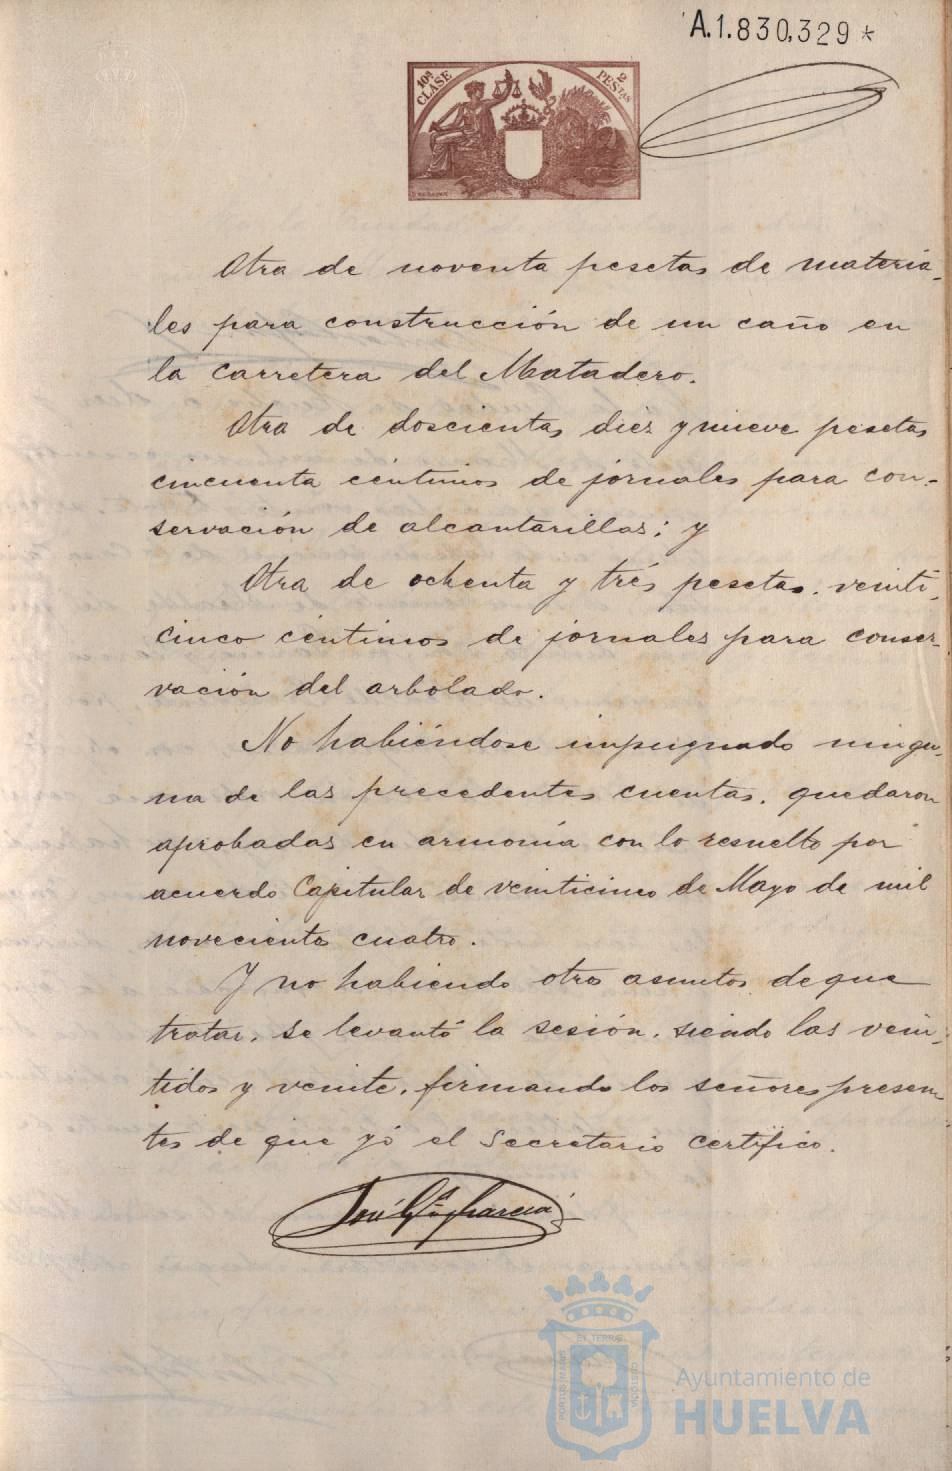 A.1.830,329*
10ª CLASE
2 PESTAS
Otra de noventa pesetas de materia-
les para construcción de un caño en
la carretera del Matadero.
Otra de doscientas diez y nueve pesetas
cincuenta céntimos de jornales para con-
servación de alcantarillas; y
Otra de ochenta y trés pesetas. veinti-
cinco céntimos de jornales para conser-
vación del arbolado.
No habiéndose impugnado ningu-
na de las precedentes cuentas. quedaron
aprobadas en armonía con lo resuelto por
acuerdo Capitular de veinticinco de Mayo de mil
novecientos cuatro.
Y no habiendo otros asuntos de que
tratar, se levantó la sesión, siendo las vein-
tidos y veinte, firmando los señores presen-
tes de que yó el Secretario certifico.
José García
ET TERRAE
PORTUS MARIS
CUSTODIA
Ayuntamiento de
HUELVA